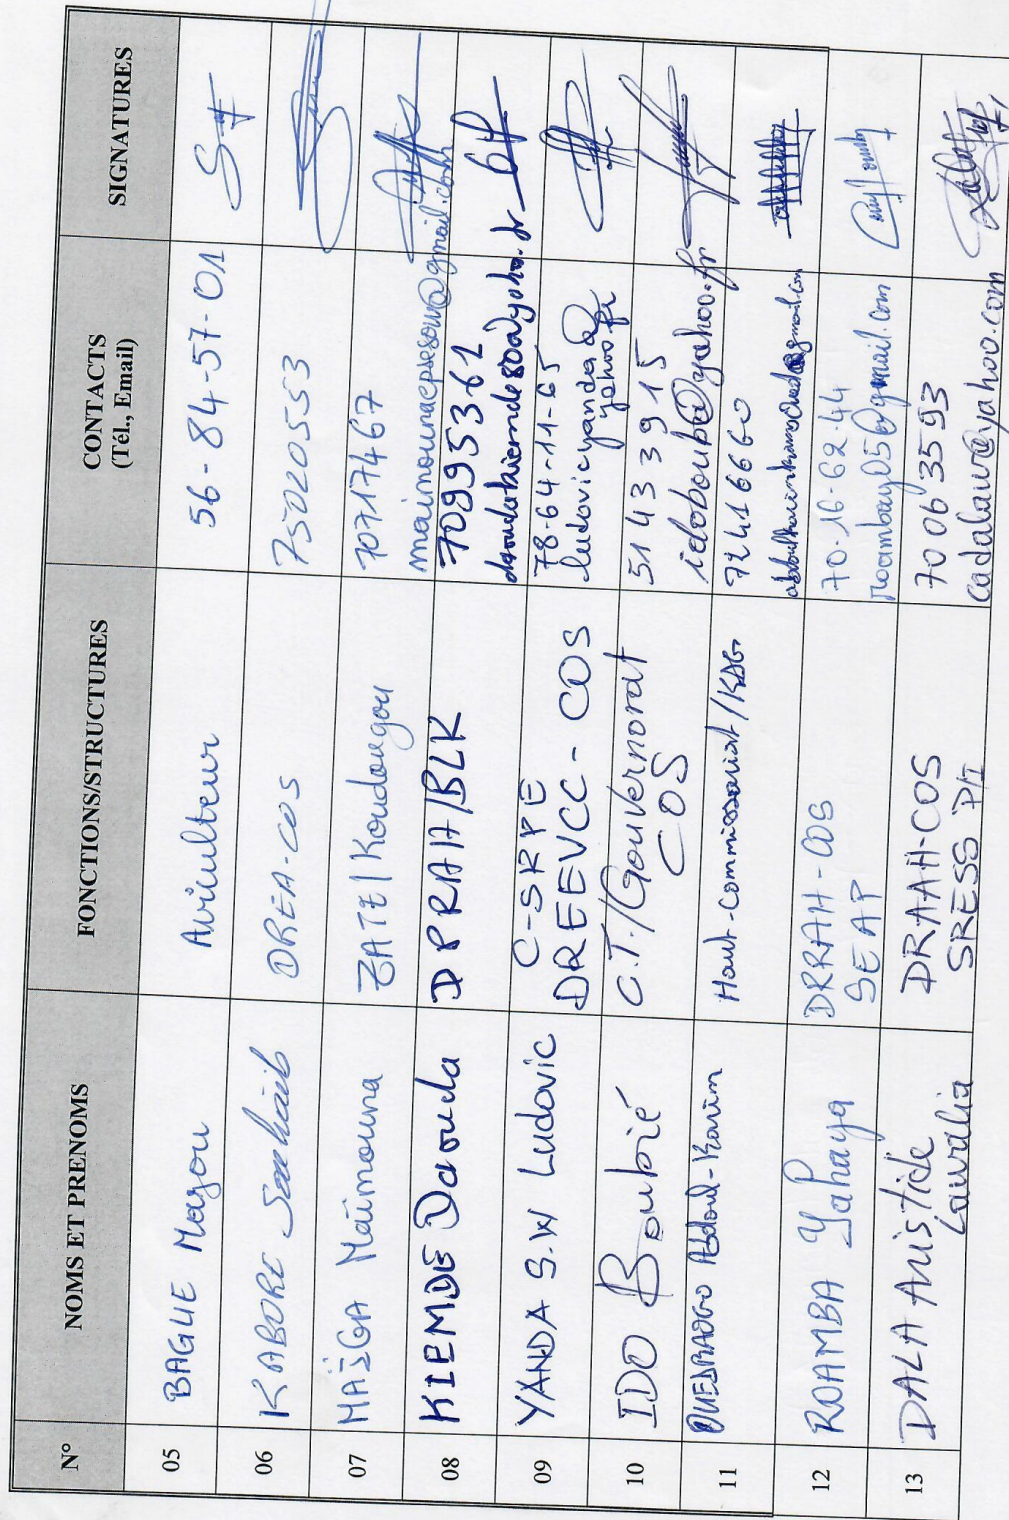 N° NOMS ET PRENOMS FONCTIONS/STRUCTURES CONTACTS SIGNATURES
(Tél., Email)
05 BAGUE Mazou Aviculteur 56-84-57-01
06 KABORE Souhaïb DREA-COS 75020553
07 MAÏGA Maïmouna ZATE/Koudougou 70717467
maimounaepsesow@gmail.com
08 KIEMDE Daouda DPRAH/BLK 70995361
daoudakiemde80@yahoo.fr
09 YANDA S.W Ludovic C-SRPE 78-64-11-65
DREEVCC-COS ludovicyanda@
yahoo.fr
10 IDO Boubié C.T./Gouvernorat 51433915
COS idoboubie@yahoo.fr
11 OUEDRAOGO Abdoul-Karim Haut-Commissariat/KDG 72416660
12 ROAMBA Yahaya DRRAH-COS 70-16-62-44
SEAP roambay05@gmail.com
13 DALA Aristide DRAAH-COS 70063593
Lauralia SRESS P/I cadalaur@yahoo.com